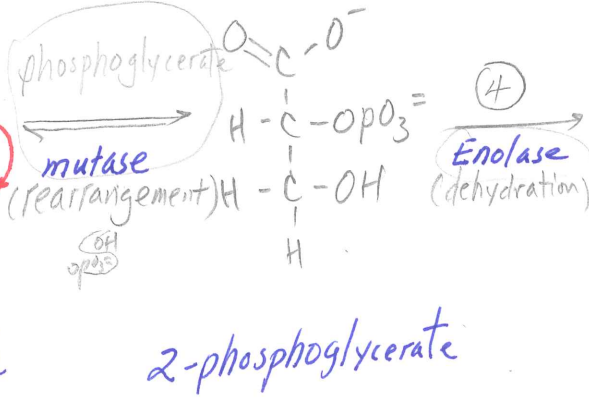 phosphoglycerate
mutase
(rearrangement)
OH
OPO3=
O
O-
C
H - C - OPO3=
H - C - OH
H
4
Enolase
(dehydration)
2-phosphoglycerate